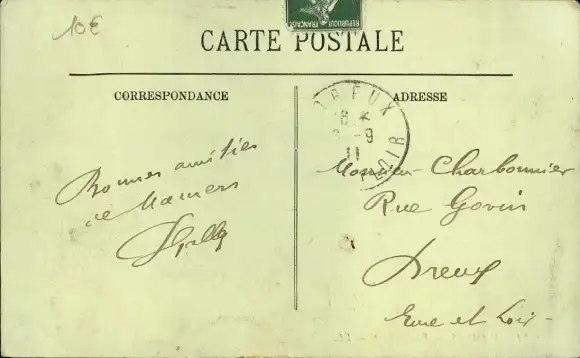 10€
REPUBLIQUE FRANÇAISE
CARTE POSTALE
CORRESPONDANCE
ADRESSE
DREUX
8 *
-9
11
LOIR
Bonnes amitiés
de Mamers
Monsieur Charbonnier
Rue Govin
Dreux
Eure et Loir